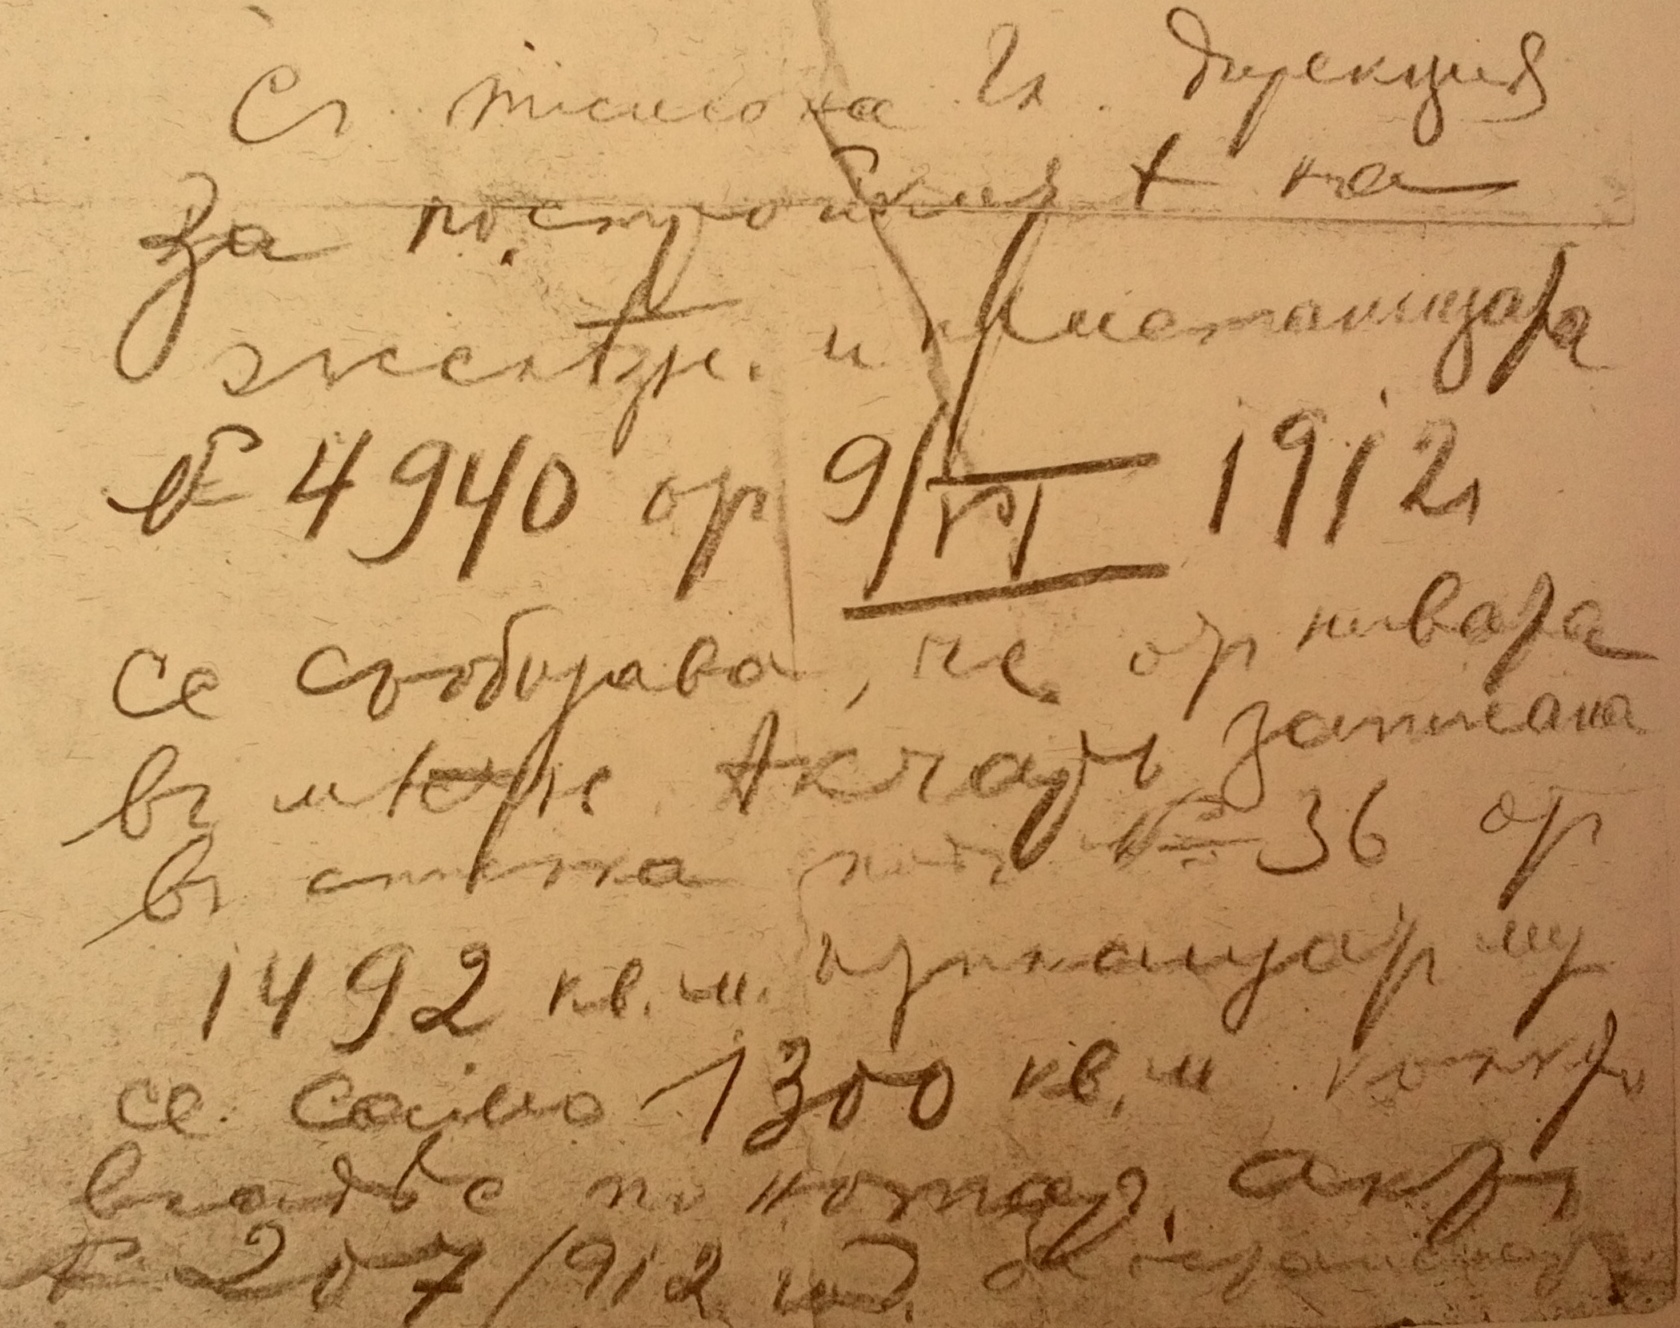 Съ писмо на Гл. Дирекция
За постройкия т на
желѣзн. и пристанищата
№ 4940 от 9/VI 1912
се съобщава, че от нивата
въ мѣст. Акчаръ записана
въ списка подъ № 36 от
1492 кв. м. припадат му
се само 1300 кв. м
владѣе по нотар. актъ
№ 207/912 год.